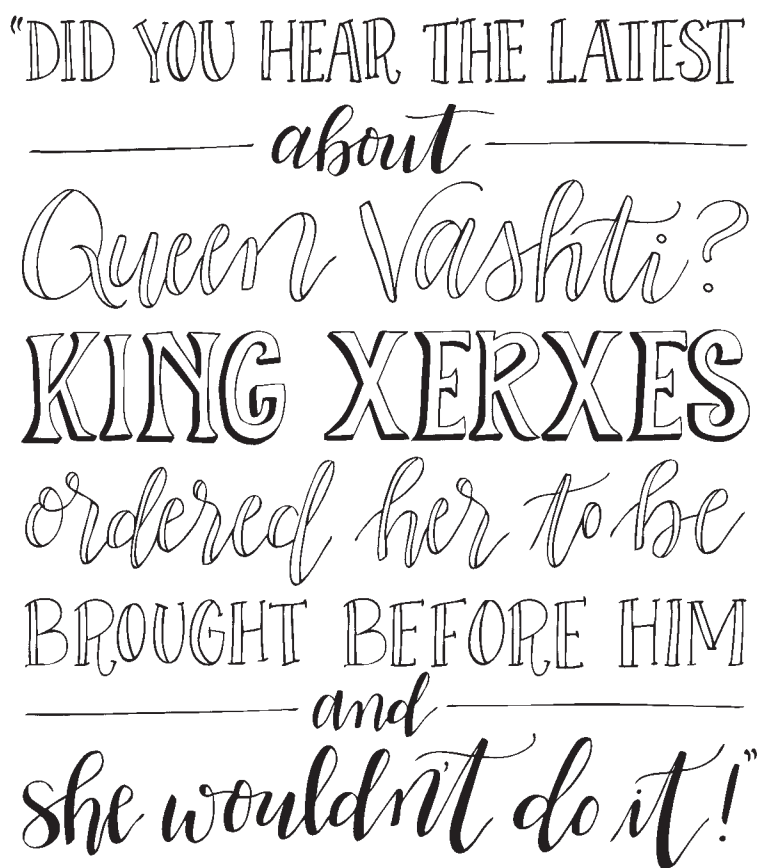 “DID YOU HEAR THE LATEST
about
Queen Vashti?
KING XERXES
ordered her to be
BROUGHT BEFORE HIM
and
she wouldn't do it!”